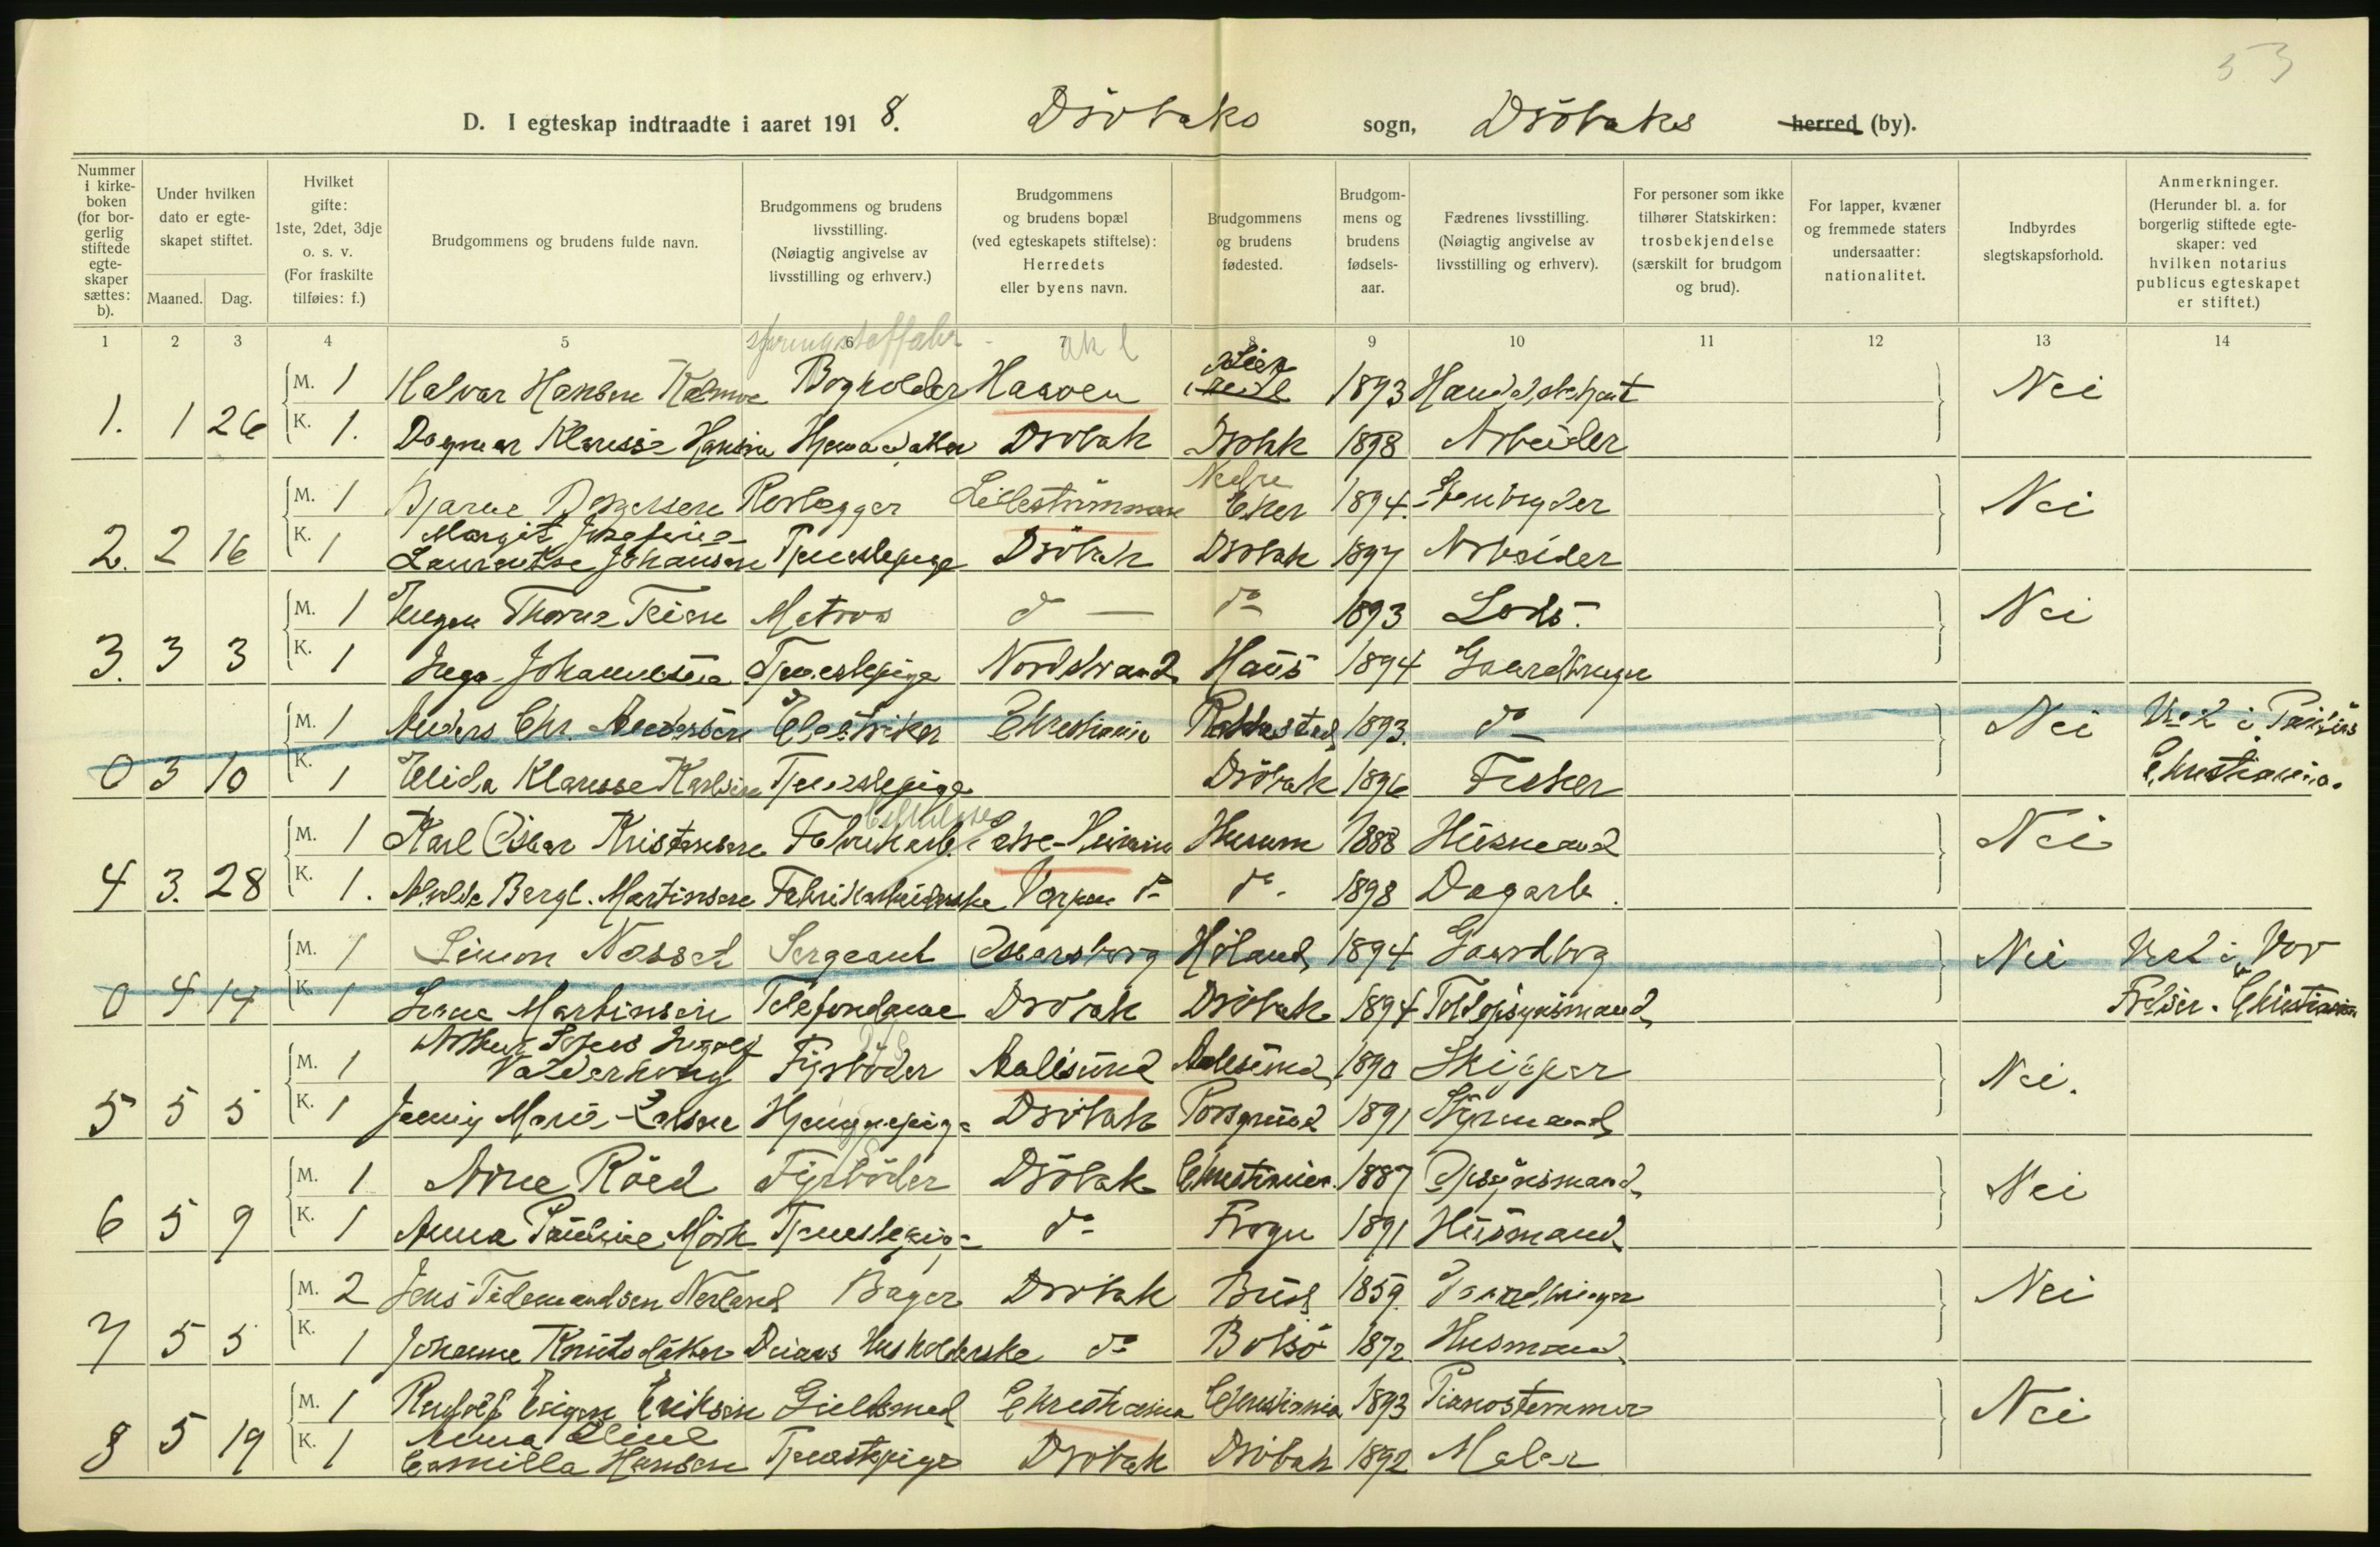 53
D. I egteskap indtraadte i aaret 1918. Drøbaks sogn, Drøbaks herred (by).
Nummer i kirke- boken (for bor- gerlig stiftede egte- skaper sættes: b).
Under hvilken dato er egte- skapet stiftet.
Maaned. Dag.
Hvilket gifte: 1ste, 2det, 3dje o. s. v. (For fraskilte tilføies: f.)
Brudgommens og brudens fulde navn.
Brudgommens og brudens livsstilling. (Nøiagtig angivelse av livsstilling og erhverv.)
Brudgommens og brudens bopæl (ved egteskapets stiftelse): Herredets eller byens navn.
Brudgommens og brudens fødested.
Brudgom- mens og brudens fødsels- aar.
Fædrenes livsstilling. (Nøiagtig angivelse av livsstilling og erhverv).
For personer som ikke tilhører Statskirken: trosbekjendelse (særskilt for brudgom og brud).
For lapper, kvæner og fremmede staters undersaatter: nationalitet.
Indbyrdes slegtskapsforhold.
Anmerkninger. (Herunder bl. a. for borgerlig stiftede egte- skaper: ved hvilken notarius publicus egteskapet er stiftet.)
1 2 3 4 5 6 7 8 9 10 11 12 13 14
M. 1 Halvar Hansen Bogholder Hasoen Lier 1893 Nei
1. 1 26 K. 1. Dagmar Klarisse Hansen Drøbak Drøbk 1898 Arbeider
M. 1 Bjarne Rørlægger Lillestrømmen Nedre Eker 1894. Nei
2. 2 16 K. 1 Margit Josefine Lauentse Johansen Tjenestepige Drøbak Drøbak 1897 Arbeider
M. 1 Eugen Thorne Matros do — do 1893 Lods. Nei
3. 3 3 K. 1 Inga Johannesen Tjenestepige Nordstrand Haus 1894 Gaardbruger
M. 1 Anders Chr. Andersen Elektriker Christiania Rakkestad 1893. do Nei Viet i Paulus
0 3 10 K. 1 Elida Klarisse Karlsen Tjenestepige Drøbak 1896 Fisker Christiania.
M. 1 Karl Oskar Kristensen Fabrikarb. Hurum 1888 Husmand Nei
4 3. 28 K. 1. Bergl. Martinsen Fabrikarbeiderske do do. 1898 Dagarb.
M. 1 Simon Nasset Sergeant Oscarsborg Høland 1894 Gaardbrg Nei Viet i Vor
0 4 14 K. 1 Martinsen Telefondame Drøbak Drøbak 1894 Toldopsynsmand Frelser. Christiania
M. 1 Arthur Ingolf Valderhoug Fyrbøder Aalesund Aalesund 1890 Skipper Nei.
5 5 5 K. 1 Jenny Marie Larsen Drøbak Porsgrund 1891 Styrmand
M. 1 Arne Røed Fyrbøder Drøbak Christiania. 1887 Opsynsmand Nei
6 5 9 K. 1 Anna Pauline Mørk Tjenestepige do Frogn 1891 Husmand
M. 2 Jens Tidemandsen Nerland Bager Drøbak Bud 1859. Gaardbruger Nei
7 5 5 K. 1 Johanne Knutsdatter Husholderske do Bolsø 1872 Husmand
M. 1 Rudolf Eriksen Guldsmed Christiania Christiania 1893 Pianostemmer Nei
8 5 19 K. 1 Anna Camilla Hansen Tjenestepige Drøbak Drøbak 1892 Maler